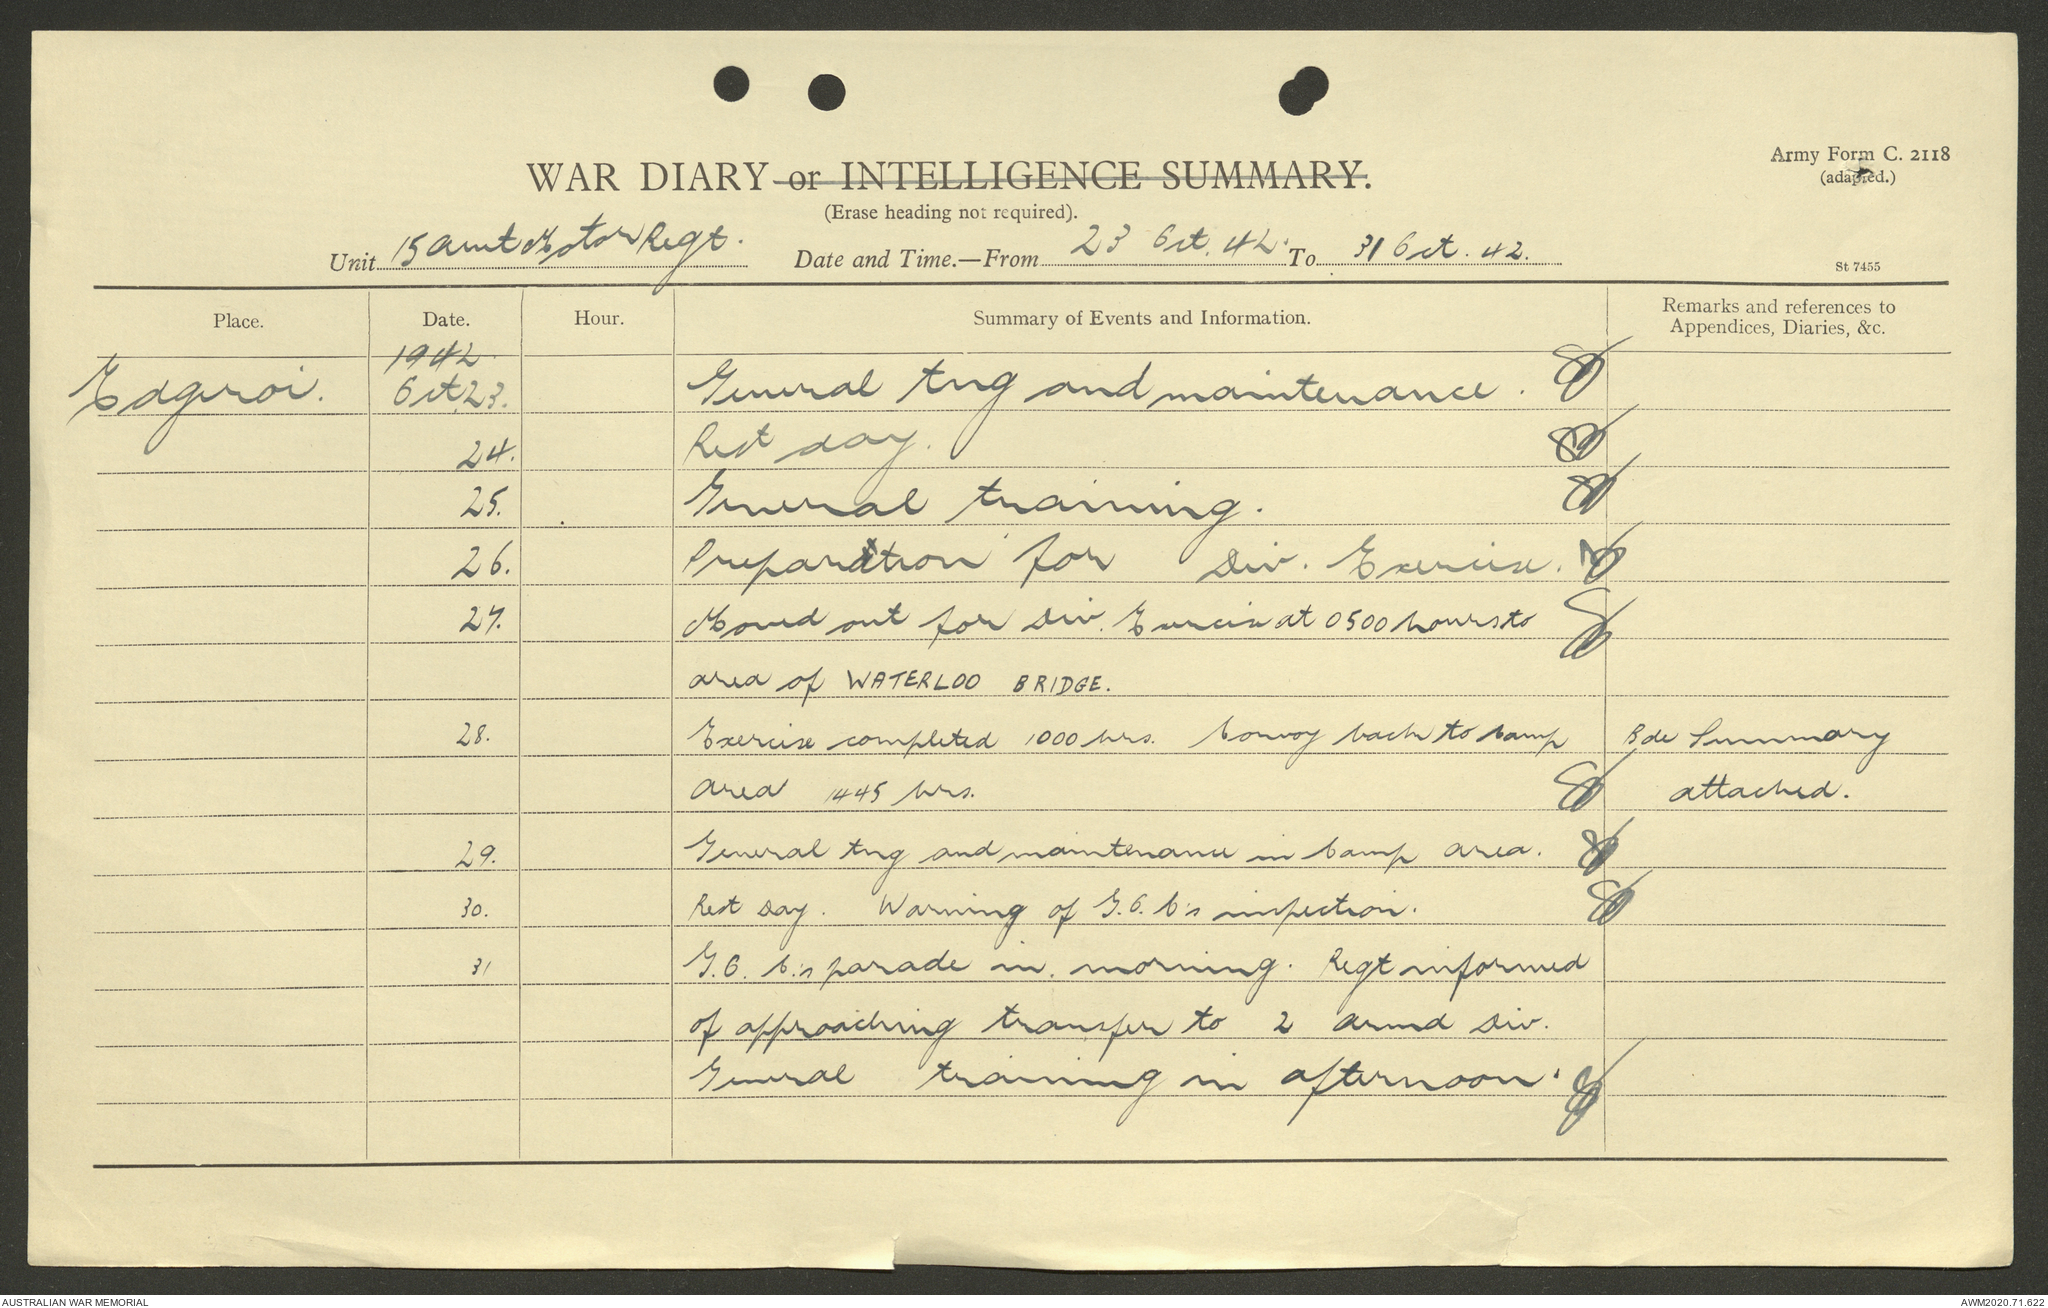 WAR DIARY or INTELLIGENCE SUMMARY.
Army Form C. 2118
(adapted.)
(Erase heading not required).
Unit 15 Aust Motor Regt. Date and Time.—From 23 Oct. 42. To 31 Oct. 42.
St 7455
Place. Date. Hour. Summary of Events and Information. Remarks and references to
Appendices, Diaries, &c.
1942
Edgeroi. Oct. 23. General tng and maintenance.
24. Rest day.
25. General training.
26. Preparation for Div. Exercise.
27. Moved out for Div. Exercise at 0500 hours to
area of WATERLOO BRIDGE.
28. Exercise completed 1000 hrs. Convoy back to Camp Bde Summary
area 1445 hrs. attached.
29. General tng and maintenance in Camp area.
30. Rest Day. Warning of G.O.C's inspection.
31 G.O.C.'s parade in morning. Regt informed
of approaching transfer to 2 Armd Div.
General training in afternoon.
AUSTRALIAN WAR MEMORIAL
AWM2020.71.622